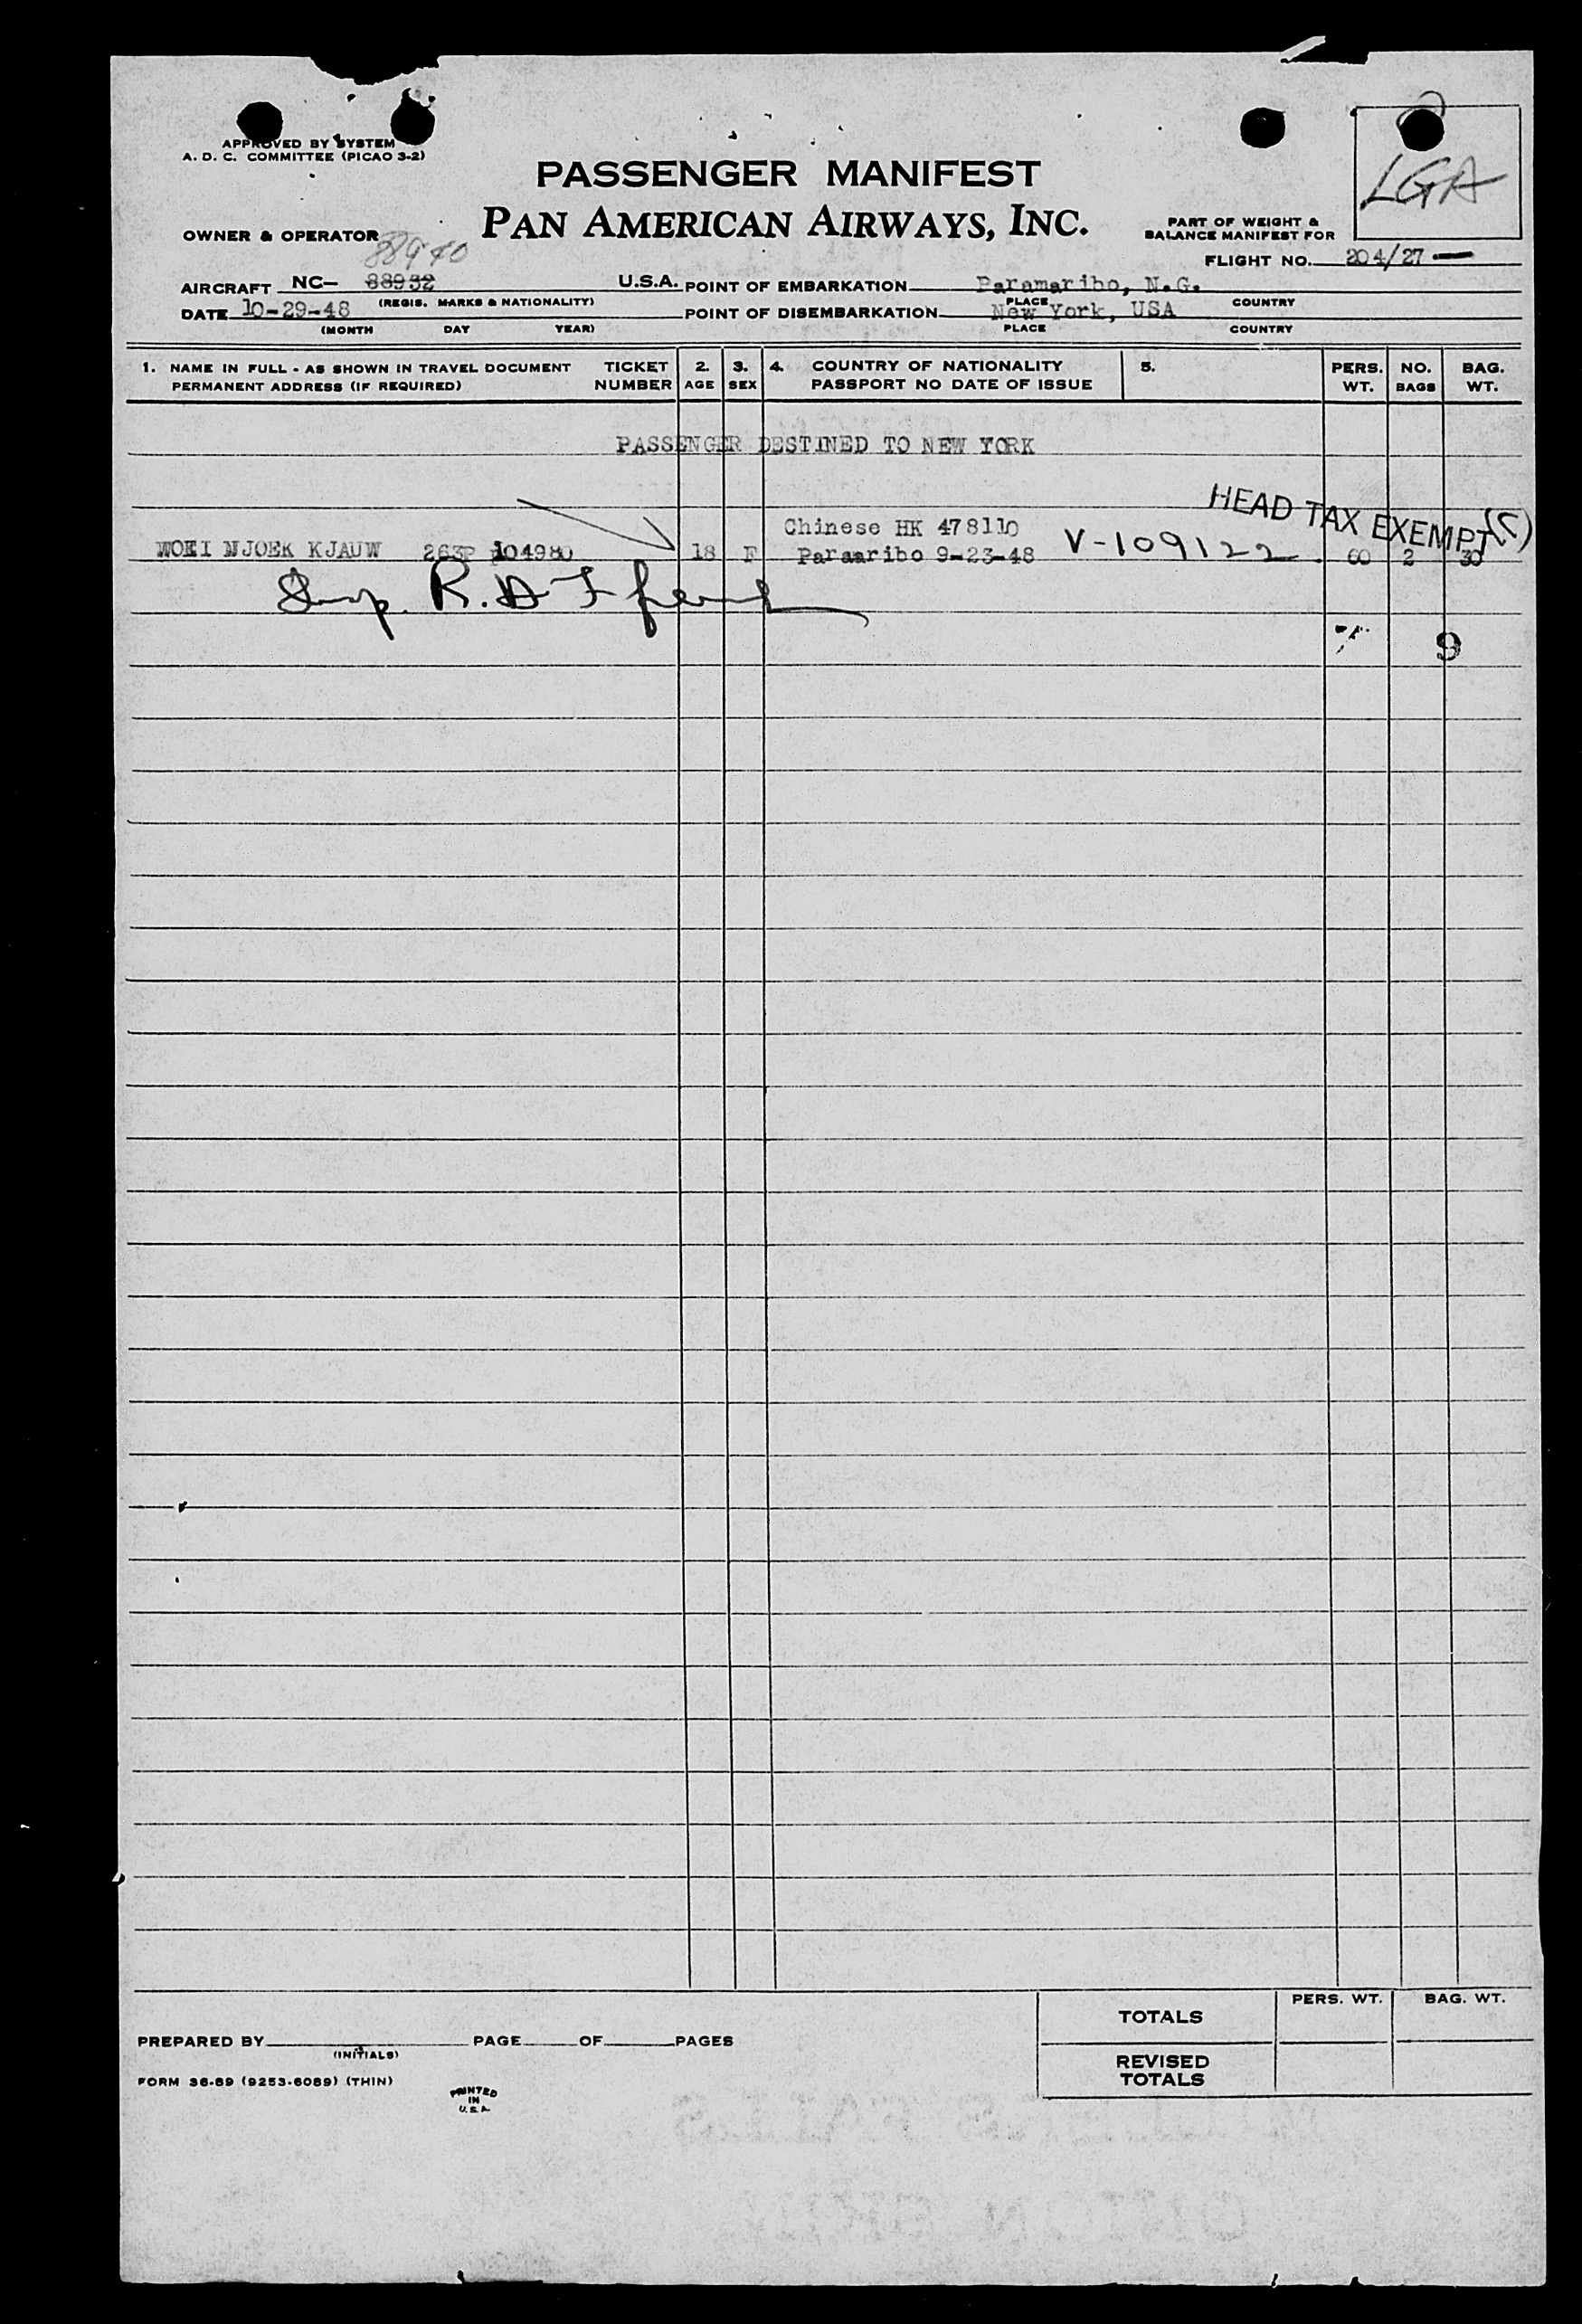 APPROVED BY SYSTEM
A. D. C. COMMITTEE (PICAO 3-2)
LGA
PASSENGER MANIFEST
PAN AMERICAN AIRWAYS, INC.
OWNER & OPERATOR
88940
PART OF WEIGHT &
BALANCE MANIFEST FOR
FLIGHT NO. 204/27
AIRCRAFT NC- 88932 U.S.A.
(REGIS. MARKS & NATIONALITY)
POINT OF EMBARKATION Paramaribo, N.G.
PLACE COUNTRY
DATE 10-29-48
(MONTH DAY YEAR)
POINT OF DISEMBARKATION New York, USA
PLACE COUNTRY
1. NAME IN FULL - AS SHOWN IN TRAVEL DOCUMENT
PERMANENT ADDRESS (IF REQUIRED)
TICKET
NUMBER
2.
AGE
3.
SEX
4. COUNTRY OF NATIONALITY
PASSPORT NO DATE OF ISSUE
5.
PERS.
WT.
NO.
BAGS
BAG.
WT.
PASSENGER DESTINED TO NEW YORK
HEAD TAX EXEMPT
Chinese HK 478110
WOEI NJOEK KJAUW 263P 104980 18 F Paraaribo 9-23-48 V-109122 60 2 30
R.
9
TOTALS
PERS. WT. BAG. WT.
REVISED
TOTALS
PREPARED BY
(INITIALS)
PAGE OF PAGES
FORM 36-69 (9253-6089) (THIN)
PRINTED
IN
U.S.A.